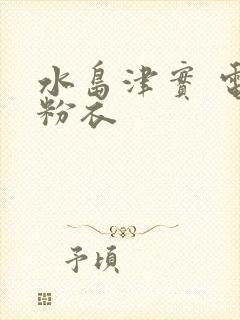 水島津實 電
粉衣
予頃